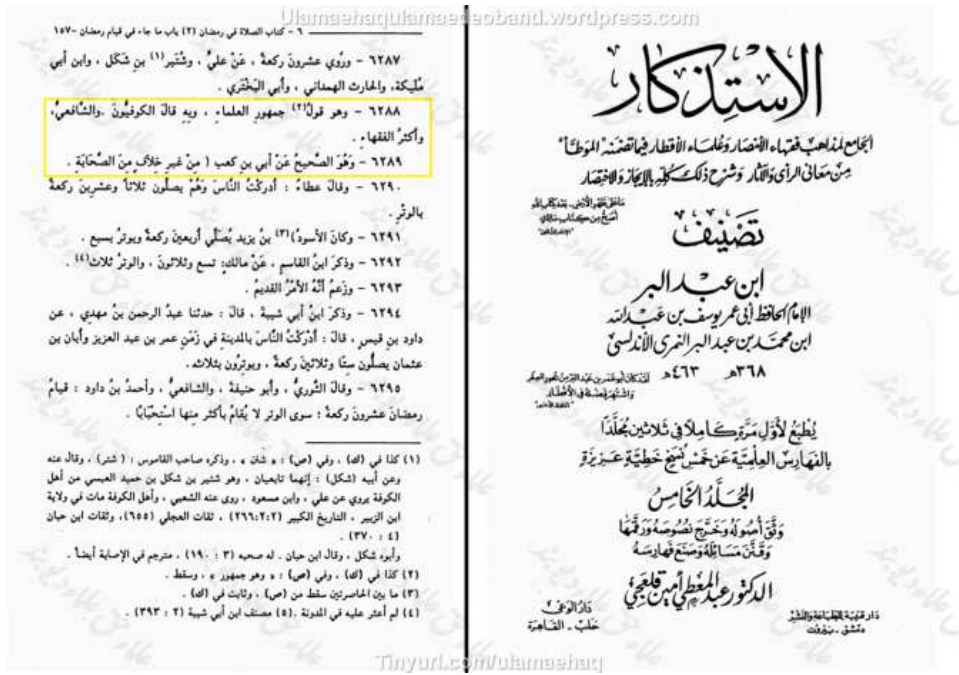 Ulamaehaqulamaedeoband.wordpress.com
٦ - كتاب الصلاة في رمضان (٢) باب ما جاء في قيام رمضان - ١٥٧
٦٢٨٧ - ورُوي عشرونَ ركعةً ، عَنْ عليٍّ ، وشُتَير(١) بن شَكَل ، وابن أبي
مُلَيكة، والحارث الهمداني ، وأبي البَخْتَري .
٦٢٨٨ - وهو قولُ(٢) جمهورِ العلماءِ ، وبِهِ قالَ الكوفيُّونَ .والشَّافعيُّ،
وأكثرُ الفقهاءِ .
٦٢٨٩ - وَهُوَ الصَّحيحُ عَنْ أبي بن كعب ( مِنْ غيرِ خِلافٍ مِنَ الصَّحَابَةِ .
٦٢٩٠ - وقالَ عطاءٌ : أدركْتُ النَّاسَ وَهُمْ يصلُّون ثلاثًا وعشرينَ ركعةً
بالوتْرِ .
٦٢٩١ - وكانَ الأسودُ)(٣) بنُ يزيد يُصَلِّي أربعينَ ركعةً ويوترُ بسبع .
٦٢٩٢ - وذكرَ ابنُ القاسم ، عَنْ مالك: تسع وثلاثونَ ، والوترُ ثلاث(٤) .
٦٢٩٣ - وزَعمُ أنَّهُ الأمْرُ القديمُ .
٦٢٩٤ - وذكرَ ابنُ أبي شيبةَ ، قالَ : حدثنا عبدُ الرحمن بنُ مهدي ، عن
داود بن قيس ، قالَ : أدْرَكْتُ النَّاسَ بالمدينةِ في زَمَنِ عمر بن عبد العزيز وأبان بن
عثمان يصلُّون ستًا وثلاثينَ ركعةً ، ويوترُون بثلاثه .
٦٢٩٥ - وقالَ الثَّوريُّ ، وأبو حنيفةَ ، والشافعيُّ ، وأحمدُ بنُ داود : قيامُ
رمضانَ عشرونَ ركعةً ؛ سوى الوتر لا يُقَامُ بأكثر منها اسْتِحْبَابًا .
(١) كذا في (ك) ، وفي (ص) : « شان » ، وذكره صاحب القاموس : ( شتر) ، وقال عنه
وعن أبيه (شكل) : إنهما تابعيان ، وهو شتير بن شكل بن حميد العبسي من أهل
الكوفة يروي عن علي ، وابن مسعود ، روى عنه الشعبي ، وأهل الكوفة مات في ولاية
ابن الزبير ، التاريخ الكبير (٢٦٦:٢:٢) ، ثقات العجلي (٦٥٥)، وثقات ابن حبان
(٤ : ٣٧٠) .
وأبوه شكل ، وقال ابن حبان . له صحبه (٣ : ١٩٠) ، مترجم في الإصابة أيضاً .
(٢) كذا في (ك) ، وفي (ص) : « وهو جمهور » ، وسقط .
(٣) ما بين الحاصرتين سقط من (ص) ، وثابت في (ك) .
(٤) لم أعثر عليه في المدونة .(٥) مصنف ابن أبي شيبة (٢ : ٣٩٣) .
الاستذكار
الجامع لمذاهب فقهاء الأمصار وعلماء الأقطار فيما تضمنه "الموطأ"
من معاني الرأي والآثار وشرح ذلك كله بالإيجاز والاختصار
ما على ظهر الأرض - بعد كتاب الله
أصح من كتاب مالك
تصنيف
ابن عبد البر
الإمام الحافظ أبي عمر يوسف بن عبد الله
ابن محمد بن عبد البر النمري الأندلسي
٣٦٨هـ ٤٦٣هـ
يطبع لأول مرة كاملا في ثلاثين مجلدا
بالفهارس العلمية عن خمس نسخ خطية عزيزة
المجلد الخامس
وثق أصوله وخرج نصوصه ورقمها
وقنن مسائله وصنع فهارسه
الدكتور عبد المعطي أمين قلعجي
دار قتيبة للطباعة والنشر
دمشق - بيروت
دار الوعي
حلب - القاهرة
Tinyurl.com/ulamaehaq